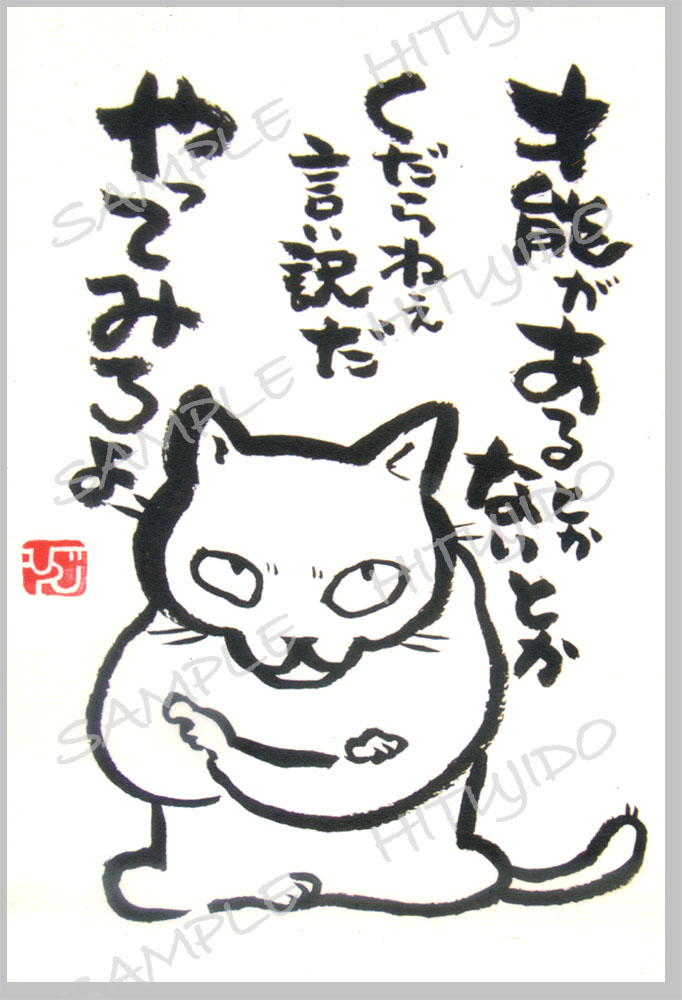 才能があるとか
ないとか
くだらねぇ
言い訳だ
やってみろよ
SAMPLE HITUJIDO
SAMPLE HITUJIDO
SAMPLE HITUJIDO
SAMPLE HITUJIDO
SAMPLE